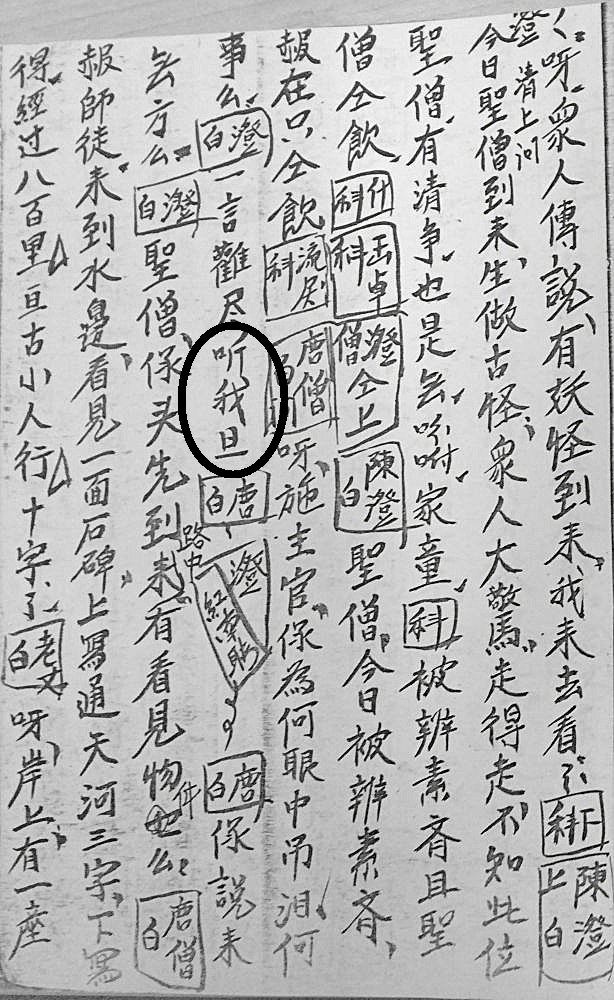 々呀、衆人傳說、有妖怪到来、我来去看〻科下陳澄上白
澄清上问
今日聖僧到来、生做古怪、衆人大驚、走得走、不知此位
聖僧、有清爭、也是無、吩咐家童、科被辨素斉且聖
僧仝飲、科什科出卓澄僧仝上陳澄白聖僧、今日被辨素斉、
赧在只仝飲科流唐僧呀、施主官、保為何眼中吊泪、何
事么、白澄一言難尽听我旦白唐澄路中白唐保說来
無方么、白澄聖僧、保头先到来、有看見物件也么、唐僧白
赧師徒、来到水邊、看見一面石碑、上寫通天河三字、下寫
得、經过八百里亘古小人行十字、了、老父白呀、岸上、有一座